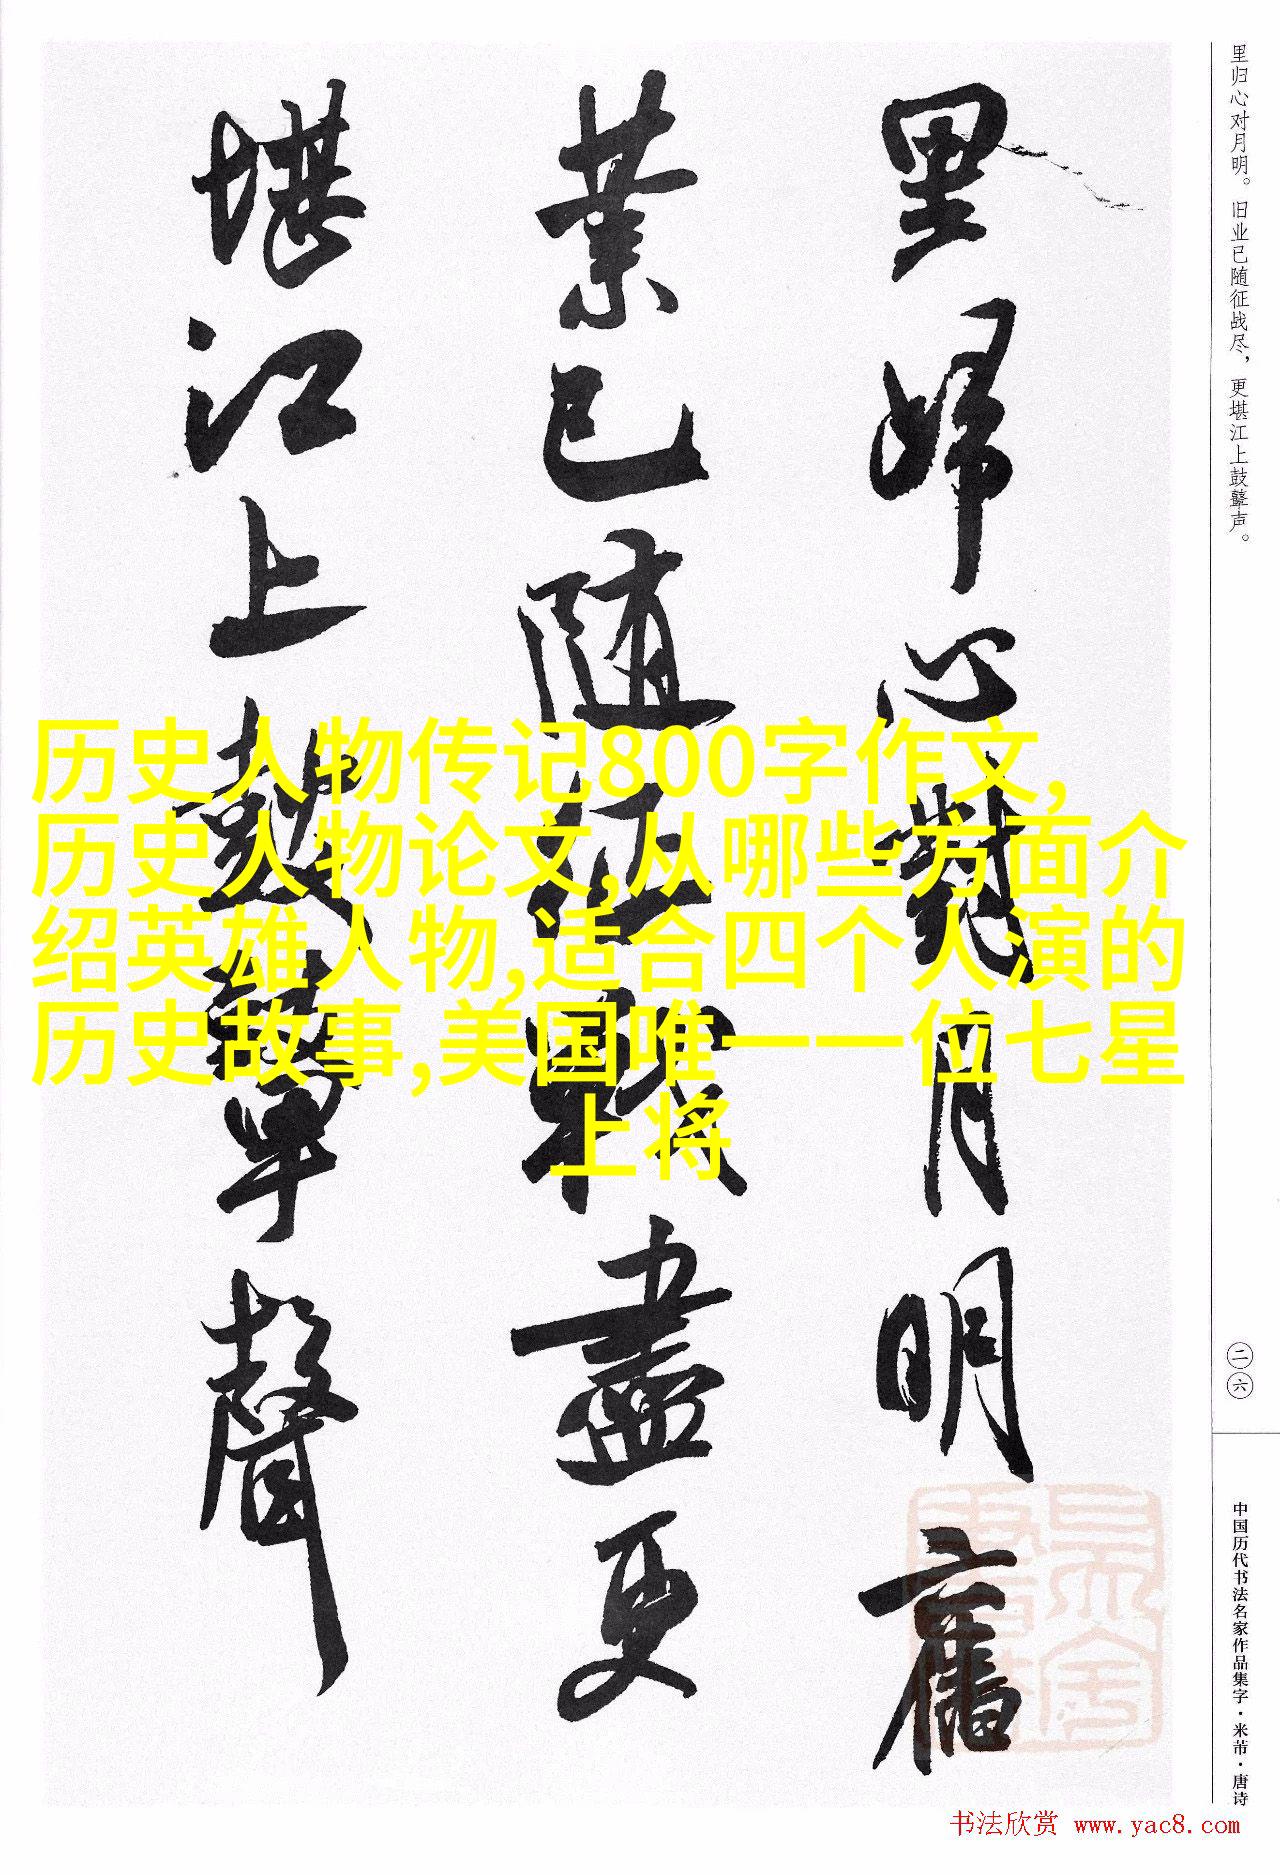 里归心对月明。旧业已随征战尽，更堪江上鼓鼙声。
二六
中国历代书法名家作品集字·米芾·唐诗
里歸心對月明舊
業已隨征戰盡更
堪江上鼓鼙聲
历史人物传记800字作文,
历史人物论文,从哪些方面介
绍英雄人物,适合四个人演的
历史故事,美国唯一一位七星
上将
书法欣赏 www.yac8.com